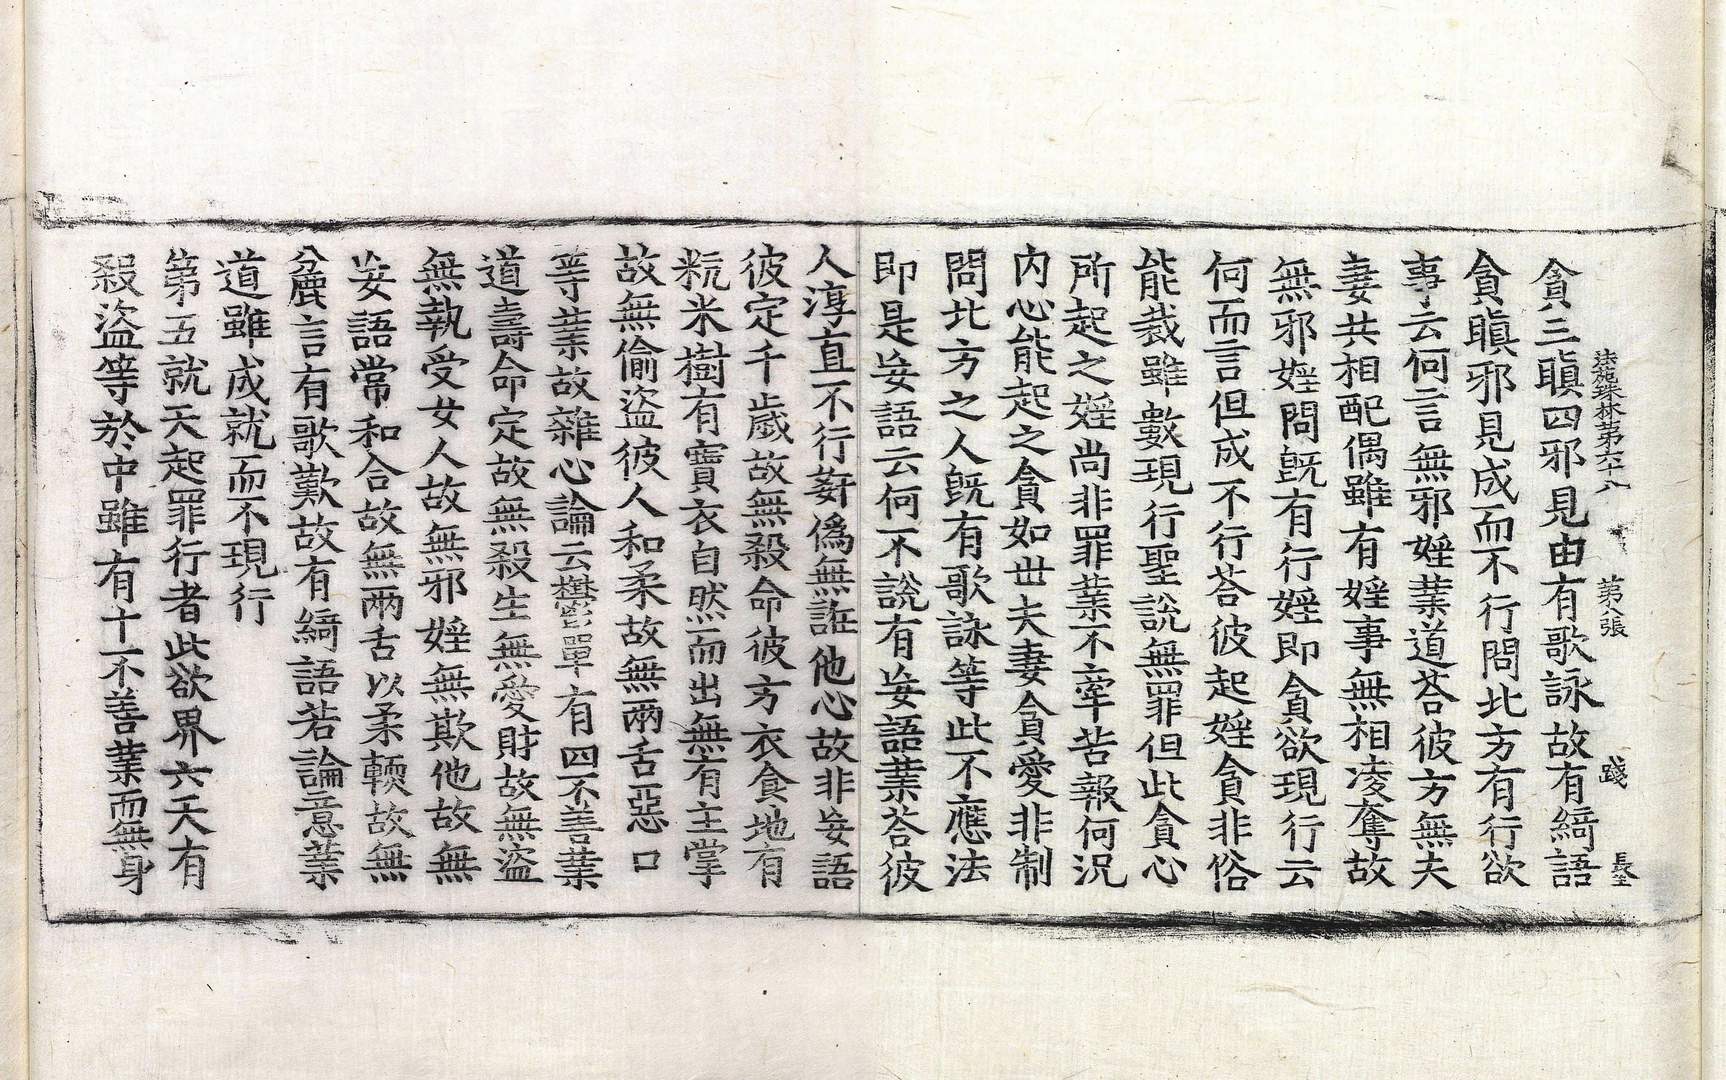 法苑珠林第六十八 第八張 踐 長生
貪三瞋四邪見由有歌詠故有綺語
貪瞋邪見成而不行問北方有行欲
事云何言無邪婬業道荅彼方無夫
妻共相配偶雖有婬事無相凌奪故
無邪婬問旣有行婬即貪欲現行云
何而言但成不行荅彼起婬貪非俗
能裁雖數現行聖說無罪但此貪心
所起之婬尚非罪業不牽苦報何況
內心能起之貪如世夫妻貪愛非制
問北方之人旣有歌詠等此不應法
即是妄語云何不說有妄語業荅彼
人淳直不行姧僞無誑他心故非妄語
彼定千歲故無殺命彼方衣食地有
粇米樹有寶衣自然而出無有主掌
故無偷盜彼人和柔故無兩舌惡口
等業故雜心論云鬱單有四不善業
道壽命定故無殺生無愛財故無盜
無執受女人故無邪婬無欺他故無
妄語常和合故無兩舌以柔輭故無
麁言有歌歎故有綺語若論意業
道雖成就而不現行
第五就天起罪行者此欲界六天有
殺盜等於中雖有十不善業而無身